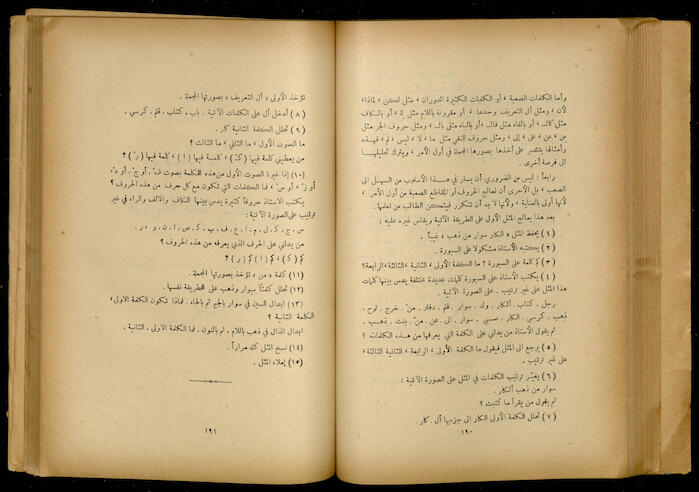 وأما الكلمات الصعبة ، أو الكلمات الكثيرة الدوران ، مثل لكن ، لماذا،
لأن ، ومثل أل التعريف وحدها ، أو مقرونة باللام مثل لِلـ ، أو بالكاف
مثل كالـ ، أو بالفاء مثل فالـ ، أو بالباء مثل بالـ ، ومثل حروف الجر مثل
من ، عن ، على ، إلى ، ومثل حروف النفي مثل ما ، لا ، ليس ، لم ، فهـذه
وأمثالها يقتصر على أخذها بصورها المجملة في أول الأمر ، ويترك تحليلهـا
الى فرصة أخرى .
رابعاً : ليس من الضروري أن يسار في هـذا الأسلوب من السهـل الى
الصعب ، بل الأحرى أن نعالج الحروف أو المقاطع الصعبة من أول الأمر ،
لأنها أولى بالعناية ، ولأنها لا بد أن تتكرر فيتمكن الطالب من تعلمها .
بعد هذا يعالج المثل الأول على الطريقة الآتية ويقاس غيره عليه :
( ١ ) يحفظ المثل « الكار سوار من ذهب » غيباً .
( ٢ ) يكتبه الأستاذ مشكولا على السبورة .
( ٣ ) كم كلمة على السبورة ؟ ما الكلمة الأولى ، الثانية ،الثالثة،الرابعة؟
( ٤ ) يكتب الأستاذ على السبورة كلمات عديدة مختلفة يدس بينها كلمات
هذا المثل على غير ترتيب . على الصورة الآتية .
رجل . كتاب . ألكار . ولد . سوار . قلم . دفتر . من . خرج . لوح .
ذهب . كرسي . الكار . صبي . سوار . الى . عن . من . بنت . ذهـب .
ثم يقول الأستاذ من يدلني على الكلمة التي يعرفها من هـذه الكلمات ؟
( ٥ ) يرجع الى المثل فيقول ما الكلمة الأولى ، الرابعة ، الثانية الثالثة ،
على غير ترتيب .
( ٦ ) يغيّر ترتيب الكلمات في المثل على الصورة الآتية :
سوار من ذهب ألكار .
ثم يقول من يقرأ ما كتبت ؟
( ٧ ) تحلل الكلمة الأولى الكار الى جزءيها أل . كار .
١٩٠
تؤخذ الأولى « أل التعريف » بصورتها المجملة .
( ٨ ) أدخل أل على الكلمات الآتية . باب . كتاب . قلم . كرسي .
( ٩ ) تحلل الكلمة الثانية كار .
ما الصوت الأول ، ما الثاني ، ما الثالث ؟
من يعطيني كلمة فيها ( ك ) ، كلمـة فيها ( ا ) ، كلمة فيها ( ر ) ؟
(١٠) إذا غيرنا الصوت الأول من هذه الكلمة بصوت ف ، أو ج ، أو د ،
أو ز ، أو س ، فما الكلمات التي تتكون مع كل حرف من هذه الحروف ؟
يكتب الاستاذ حروفاً كثيرة يدس بينها الكاف والالف والراء في غير
ترتيب على الصورة الآتية :
س . ج . ك . ل . م . ا . ع . ف . ب . ك . ص . ا . ن . و . ر .
من يدلني على الحرف الذي يعرفه من هذه الحروف ؟
كم ( ك ) ، كم ( ا ) كم ( ر ) ؟
(١١) كلمة « من » تؤخذ بصورتها المجملة .
(١٢) تحلل كلمتا سوار وذهب على الطريقة نفسها .
(١٣) ابدال السين في سوار بالجيم ثم بالحاء . فماذا تكون الكلمة الاولى،
الكلمة الثانية ؟
ابدال الذال في ذهب باللام . ثم بالنون . فما الكلمة الاولى . الثانية .
(١٤) نسخ المثل كله مراراً .
(١٥) إملاء المثل .
١٩١